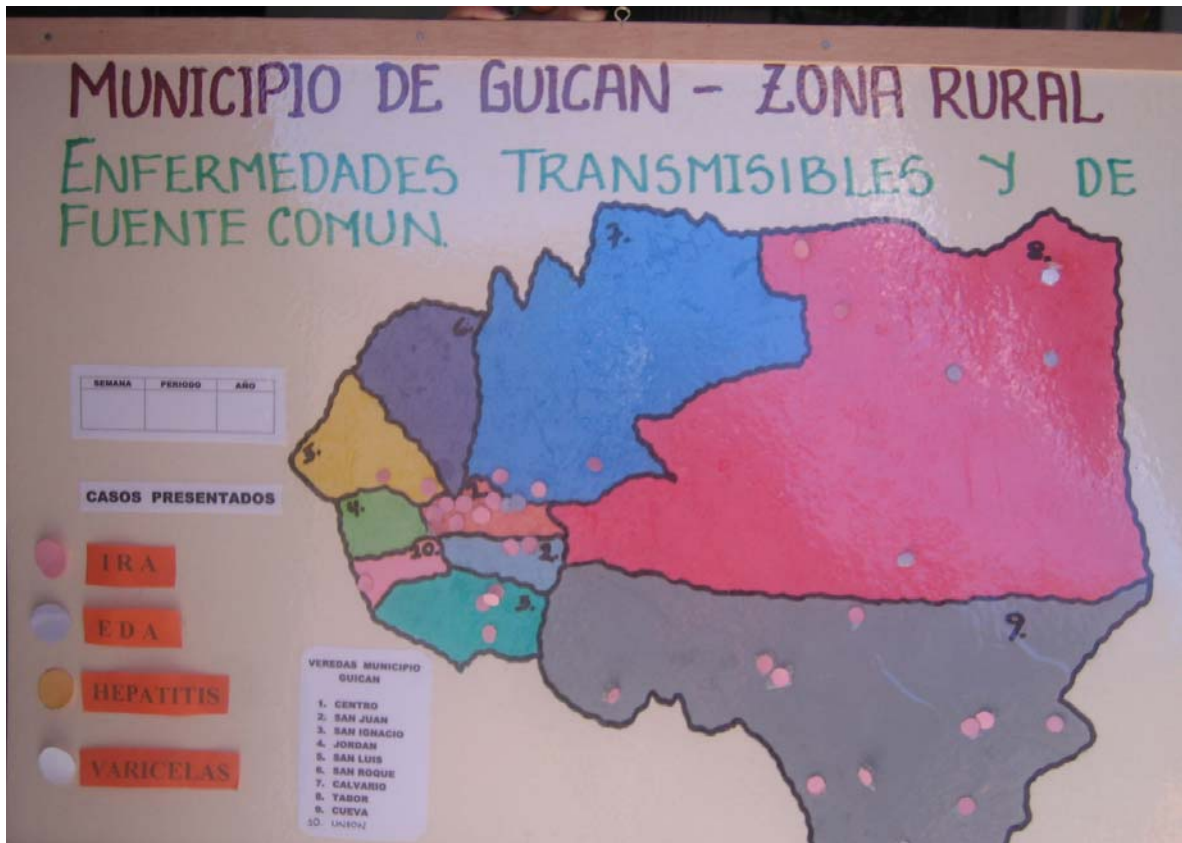 MUNICIPIO DE GUICAN - ZONA RURAL
ENFERMEDADES TRANSMISIBLES Y DE
FUENTE COMUN.
7.
8.
6.
SEMANA PERIODO AÑO
5.
CASOS PRESENTADOS
4.
10.
2.
IRA
3.
EDA
9.
HEPATITIS
VARICELAS
VEREDAS MUNICIPIO
GUICAN
1. CENTRO
2. SAN JUAN
3. SAN IGNACIO
4. JORDAN
5. SAN LUIS
6. SAN ROQUE
7. CALVARIO
8. TABOR
9. CUEVA
10. UNION